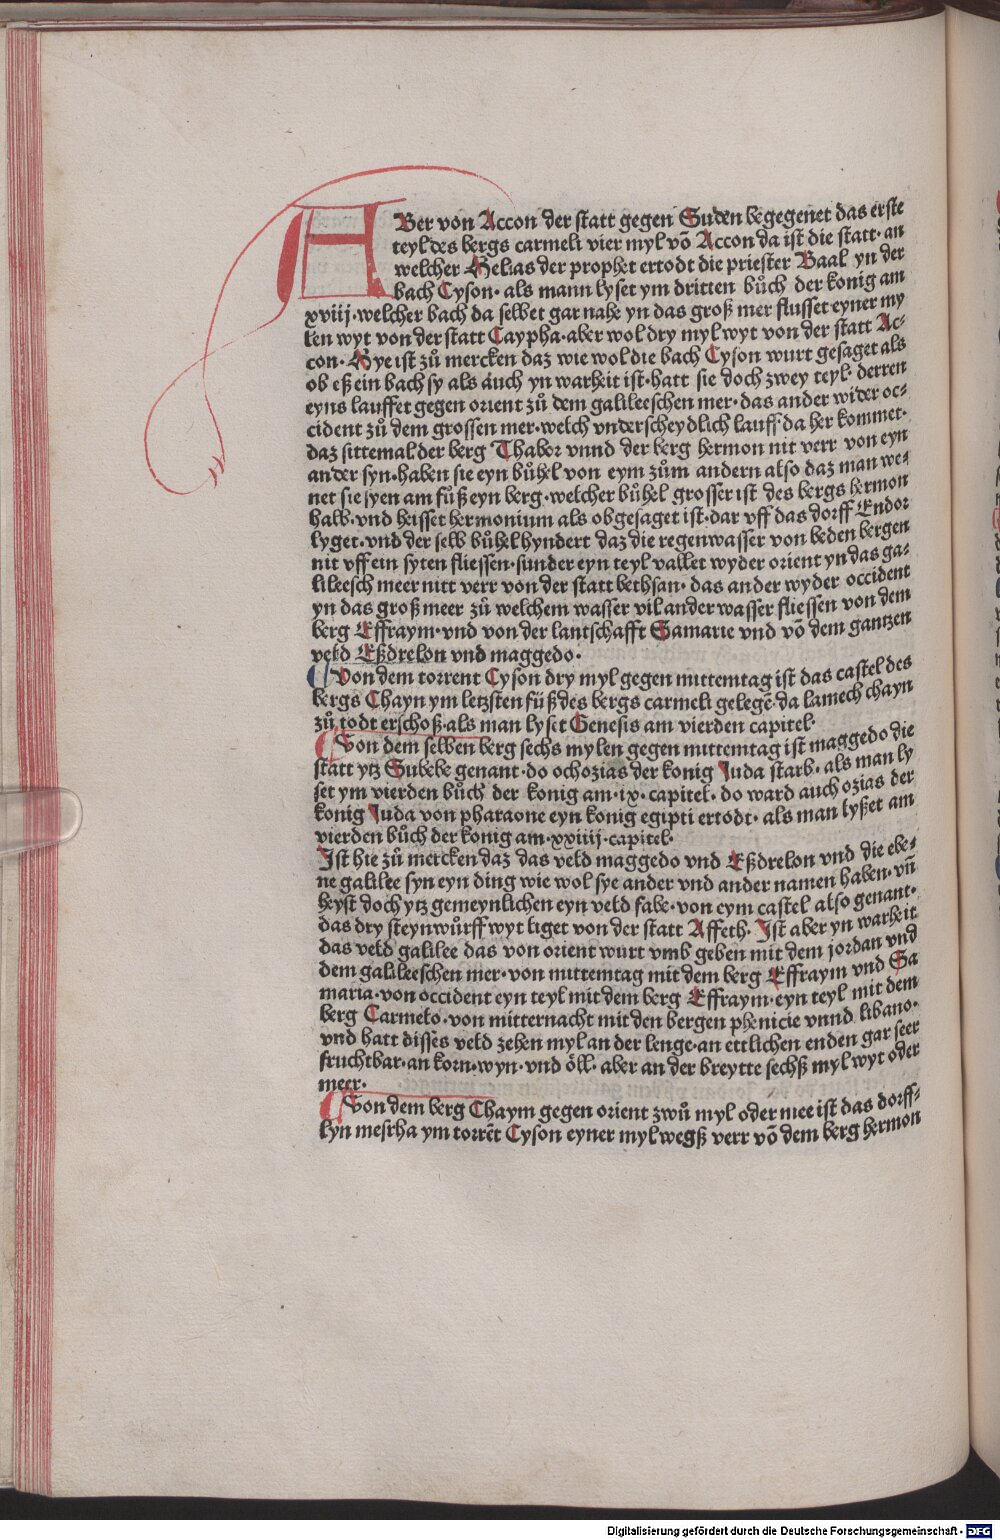 ABer von Accon der statt gegen Suden begegenet das erste
teyl des bergs carmeli vier myl võ Accon da ist die statt· an
welcher Helias der prophet ertodt die priester Baal yn der
bach Cyson· als mann lyset ym dritten bůch der konig am
xviij·welcher bach da selbet gar nahe yn das groß mer flusset eyner my
len wyt von der statt Caypha·aber wol dry myl wyt von der statt Ac⸗
con· Hye ist zů mercken daz wie wol die bach Cyson wurt gesaget als
ob eß ein bach sy als auch yn warheit ist·hatt sie doch zwey teyl· derren
eyns lauffet gegen orient zů dem galileeschen mer·das ander wider oc⸗
cident zů dem grossen mer·welch vnderscheydlich lauff da her kommet·
daz sittemal der berg Thabor vnnd der berg hermon nit verr von eyn
ander syn·haben sie eyn bůhel von eym zům andern also daz man we⸗
net sie syen am fůß eyn berg·welcher bůhel grosser ist des bergs hermon
halb·vnd heisset hermonium als obgesaget ist·dar vff das dorff Endor
lyget·vnd der selb bůhel hyndert daz die regenwasser von beden bergen
nit vff ein syten fliessen·sunder eyn teyl vallet wyder orient yn das ga⸗
lileesch meer nitt verr von der statt bethsan· das ander wyder occident
yn das groß meer zů welchem wasser vil ander wasser fliessen von dem
berg Effraym·vnd von der lantschafft Samarie vnd võ dem gantzen
veld Eßdrelon vnd maggedo·
Von dem torrent Cyson dry myl gegen mittemtag ist das castel des
bergs Chayn ym letzsten fůß des bergs carmeli gelegẽ·da lamech chayn
zů todt erschoß·als man lyset Genesis am vierden capitel·
Von dem selben berg sechs mylen gegen mittemtag ist maggedo die
statt ytz Subebe genant·do ochozias der konig Juda starb· als man ly
set ym vierden bůch der konig am·ix·capitel· do ward auch ozias der
konig Juda von pharaone eyn konig egipti ertodt· als man lyßet am
vierden bůch der konig am·xxiiij·capitel·
Ist hie zů mercken daz das veld maggedo vnd Eßdrelon vnd die ebe⸗
ne galilee syn eyn ding wie wol sye ander vnd ander namen haben· vñ
heyst doch ytz gemeynlichen eyn veld fabe·von eym castel also genant·
das dry steynwůrff wyt liget von der statt Affeth· Ist aber yn warheit
das veld galilee das von orient wurt vmb geben mit dem jordan vnd
dem galileeschen mer·von mittemtag mit dem berg Effraym vnd Sa
maria·von occident eyn teyl mit dem berg Effraym·eyn teyl mit dem
berg Carmelo·von mitternacht mit den bergen phenicie vnnd libano·
vnd hatt disses veld zehen myl an der lenge·an ettlichen enden gar seer
fruchtbar·an korn·wyn·vnd öll· aber an der breytte sechß myl wyt oder
meer·
Von dem berg Chaym gegen orient zwů myl oder mee ist das dorff⸗
lyn mesrha ym torrẽt Cyson eyner myl wegß verr võ dem berg hermon
Digitalisierung gefördert durch die Deutsche Forschungsgemeinschaft - DFG